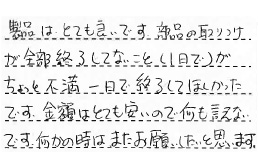 製品はとても良いです。部品の取りつけ
が全部終了してないこと(1日で)が
ちょと不満 一日で終了してほしかった
です。金額はとても安いので何も言えない
です。何かの時はまたお願いしたいと思います。